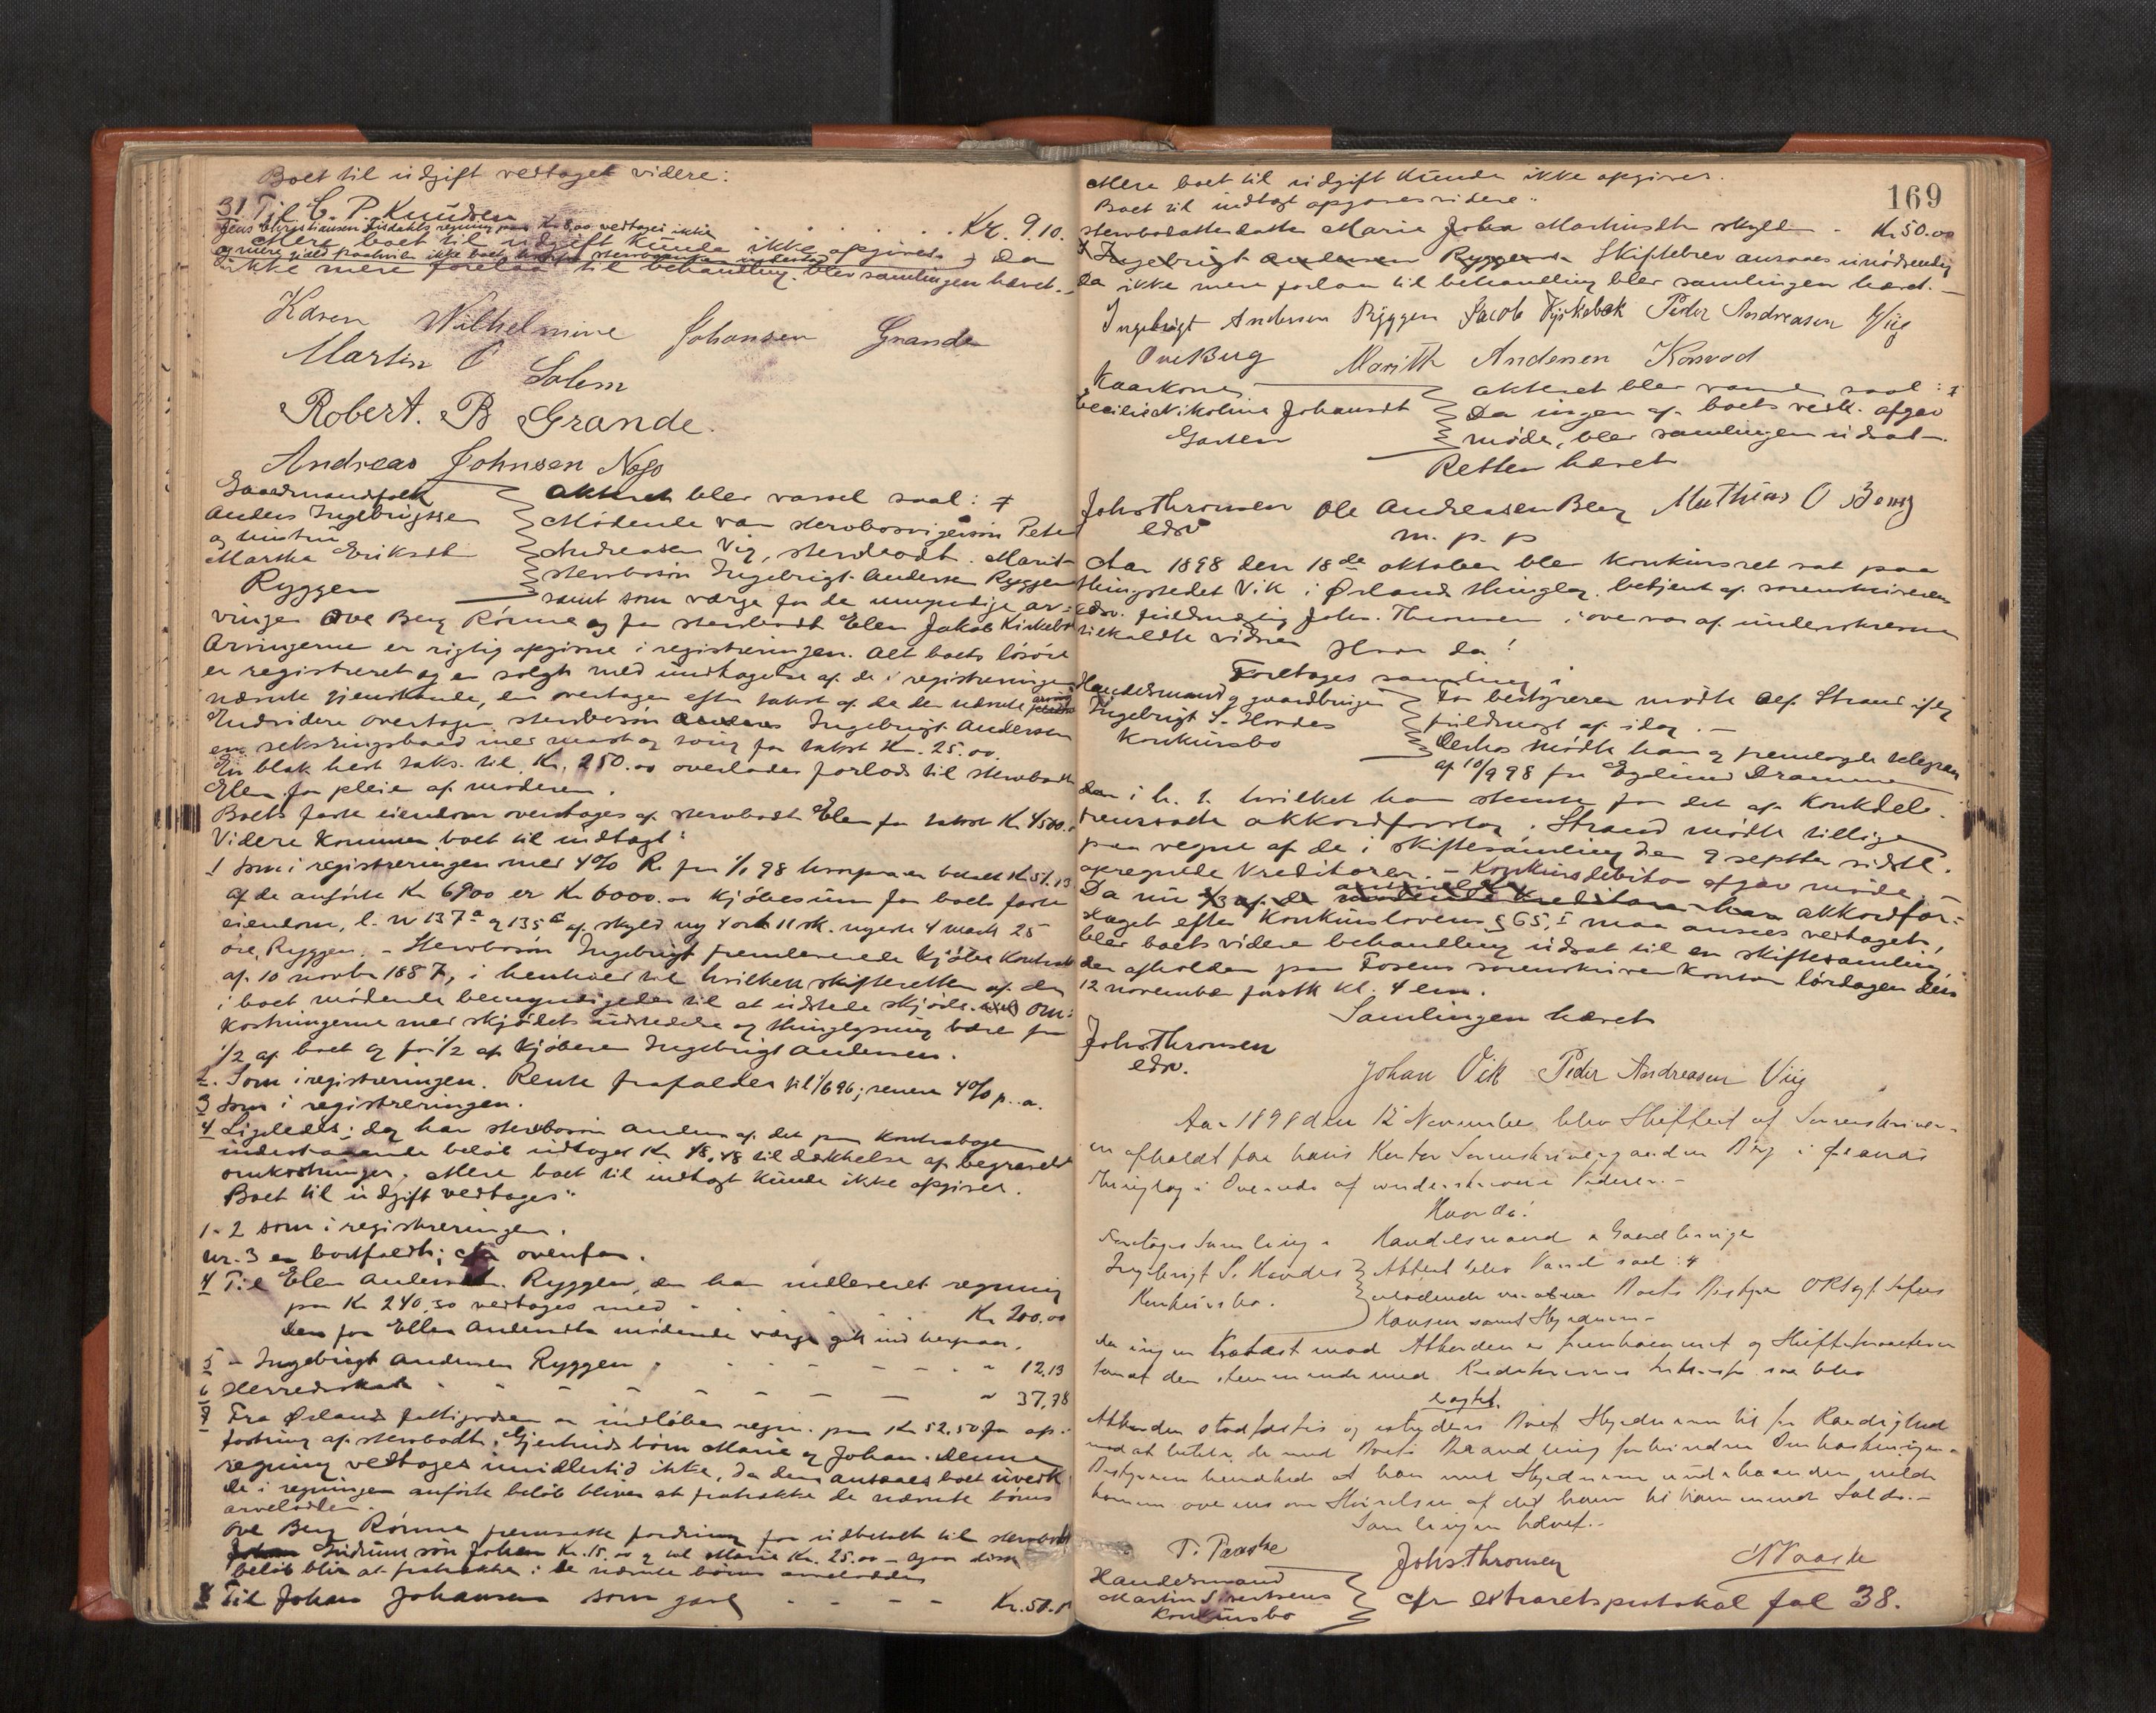 Boet til udgift vedtaget videre:
31 Til C. P. Knudsen . . . . . . Kr. 9.10.
Jens Christiansen regning paa Kr. 8,00 vedtages ikke
Mere boet til udgift kunde ikke opgives. Da
ikke mere forelaa til behandling blev samlingen hævet.
Karen Wilhelmine Johansen Grande
Martin O Solem
Robert. B Grande.
Andreas Johnsen
Gaardmandsfolk
Anders Ingebrigtsen
og hustru
Martha Eriksdt
Ryggen
Akteret blev varsel saal: 7
Mødende var stervbosvigersøn Peter
Andreasen Vig, stervbodt. Marit
stervbosøn Ingebrigt Andersen Ryggen
samt som værge for de umyndige ar-
vinger Ove Berg Rønne og for stervbodt Elen Jakob Kirkebak
Arvingerne er rigtig opgivne i registreringen. Alt boets løsøre
er registreret og er solgt med undtagelse af de i registreringen
nævnte gjenstande, der overtages efter takst af de der nævnte
Endvidere overtager stervbosøn Ingebrigt Andersen
en seksringsbaad med mast og seil for takst Kr. 25.00.
En blak hest takst. til Kr. 250.00 overlades forlods til stervbodt
Elen for pleie af moderen.
Boets faste eiendom overtages af stervbodt Elen for takst Kr 4500.
Videre kommer boet til indtægt:
1 Som i registreringen med 4% R. fra 1/1 98 hvorpaa er betalt Kr. 51.13
Af de anførte Kr 6900 er Kr 6000.00 kjøbesum for boets faste
eiendom, l. nr 137a og 135a af skyld ny 4 ort 11 sk. nyeste 4 mark 25
øre, Ryggen. - Stervbosøn Ingebrigt fremleverede kjøbe kontrakt
af 10 novbr 1887, i henhold til hvilken skifteretten af de
i boet mødende bemyndigedes til at udstede skjøde. Om-
kostningerne med skjødets udstedelse og thinglysning bæres for
1/2 af boet og for 1/2 af kjøberen Ingebrigt Andersen.
2. Som i registreringen. Rente frafaldes til 1/6 96; senere 4% p. a.
3 Som i registreringen.
4 Ligeledes; dog har stervbosøn Anders af det paa kontrabogen
indestaaende beløb udtaget Kr 48,48 til dækkelse af begravelses
omkostninger. Mere boet til indtægt kunde ikke opgives.
Boet til udgift vedtages:
1-2 som i registreringen.
Nr. 3 er bortfaldt; cfr ovenfor.
4 Til Elen Andersdt. Ryggen, der har indleveret regning
paa Kr 240.30 vedtages med . . . . . Kr 200.00
Den for Ellen Andersdt mødende værge gik ind herpaa.
5 - Ingebrigt Andersen Ryggen . - - - - - " 12.13
6 Herredsskat - - - - - - - " 37,78
7 Fra Ørlands fattigvæsen er indløben regn. paa Kr 52,50 for op-
fostring af stervbodt. Gjertruds børn Marie og Johan. Denne
regning vedtages imidlertid ikke, da den ansaaes boet uvedk.
De i regningen anførte beløb bliver at fratrække de nævnte børns
arvelodder.
Ove Berg Rønne fremsatte fordring for udbetalt til stervbodt
Gudruns søn Johan Kr. 15.00 og til Marie Kr. 25.00 - ogsaa disse
beløb bliver at fratrække i de nævnte børns arvelodder
8 Til Johan Johansen som gave - - - - Kr. 50.00
169
Mere boet til udgift kunde ikke opgives.
Boet til indtægt opgaves videre:
stervbodatterdatter Marie Johansdt skyld - Kr 50.00
Ingebrigt Andersen Ryggens Skiftebrev ansaaes unødvendig
Da ikke mere forlaa til behandling blev samlingen hævet. -
Ingebrigt Andersen Ryggen Jacob Kjrkebak Peder Andreasen Viig
Ove Berg Marith Andersen
Kaarkone
Nikoline Johansdt
Garten
Akteret blev varsel saal: 7
Da ingen af boets vedk. afgav
møde, blev samlingen udsat.
Retten hævet
Johs Thronsen Ole Andreasen Berg Mathias O Berg
edsv m. p. p
Aar 1898 den 18de oktober blev konkursret sat paa
thingstedet Vik i Ørlands thinglag betjent af sorenskriverens
edsv. fuldmægtig Johs. Thronsen i overvær af underskrevne
tilkaldte vidner
Hvor da!
Foretages samling i
Handelsmand og gaardbruger
Ingebrigt S. Hovdes
Konkursbo
For bestyreren mødte Strand ifølge
fuldmagt af idag. -
Derhos mødte han og fremlagde telegram
af 10/9 98 fra Egelund Drammen
i h. t. hvilket han stemte for det af konkdeb.
fremsatte akkordforslag. Strand mødte tillige
paa vegne af de i skiftesamling den 9 septbr sidstl.
opregnede kreditorer. - Konkursdebitor afgav møde.
Da nu akkordfor-
slaget efter konkurslovens § 65, I maa ansees vedtaget,
blev boets videre behandling udsat til en skiftesamling
der afholdes paa Fosens sorenskriverkontor lørdagen den
12 november førstk kl. 4 em.
Samlingen hævet
Johs Thronsen
edsv.
Johan Vik Peder Andreasen Viig
Aar 1898 den 12 November blev Skifteret af Sorenskriver-
en afholdt paa hans Kontor Sorenskrivergaarden Berg i Ørlands
Thinglag i Overvær af underskrevne Vidner. -
Hvor da!
Foretages Samling i Handelsmand & Gaardbruger
Ingebrigt S. Hovdes
Konkursbo.
Akteret blev Varsel saal: 4
Mødende var Boets Bestyrer
Hansen samt Skyldneren -
Da ingen Protest mod Akkorden er fremkommet og
saa blev
eragtet
Akkorden stadfæstes og Boet Skyldneren til fri Raadighed
mod at betale de med Boets Behandling forbundne Omkostninger -
Bestyreren bemærkede at han med Skyldneren underhaanden vilde
komme overens om Størrelsen af det ham tilkommende Salær. -
Samlingen hævet. -
T. Paaske
Johs Thronsen
N Paaske
Handelsmand
Martin Sivertsens
Konkursbo
cfr extraretsprotokol fol 38.